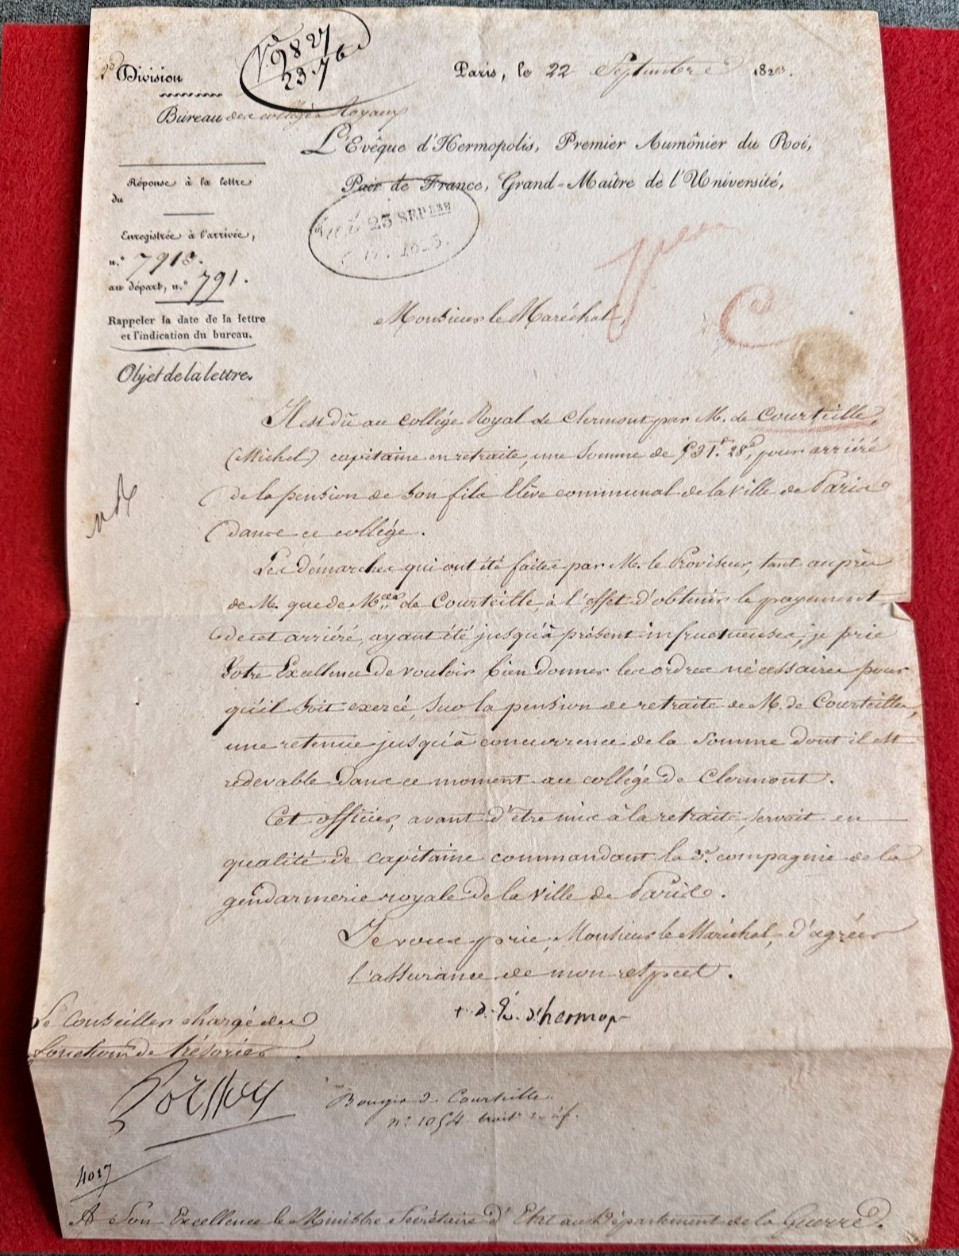 Division
9827
23.7b
Paris, le 22 Septembre 182
Bureau des colléges Royaux
L'Evêque d'Hermopolis, Premier Aumônier du Roi,
Pair de France, Grand-Maître de l'Université,
Réponse à la lettre
du
Enregistrée à l'arrivée,
n.º 7918.
au départ, n.º 791.
Rappeler la date de la lettre
et l'indication du bureau.
Objet de la lettre.
23 SEPTBRE
Monsieur le Maréchal,
C
Il est dû au collége Royal de Clermont par M. de Courteille,
(Michel) capitaine en retraite, une somme de 28 pour arriéré
de la pension de son fils Elève communal de la ville de Paris
dans ce collége.
Les démarches qui ont été faites par M. le Proviseur, tant auprès
de M. que de M.me de Courteille à l'effet d'obtenir le payement
de cet arriéré, ayant été jusqu'à présent infructueuses, je prie
Votre Excellence de vouloir bien donner les ordres nécessaires pour
qu'il soit exercé, sur la pension de retraite de M. de Courteille,
une retenue jusqu'à concurrence de la somme dont il est
redevable dans ce moment au collége de Clermont.
Cet officier, avant d'être mis à la retraite, servait en
qualité de capitaine commandant la 3.e compagnie de la
gendarmerie royale de la ville de Paris.
Je vous prie, Monsieur le Maréchal, d'agréer
l'assurance de mon respect.
+ d. d'hermop
Le Conseiller chargé des
fonctions de trésorier.
de Courteille
n.º 1054
4017
A Son Excellence le Ministre Secrétaire d'Etat au Département de la Guerre.